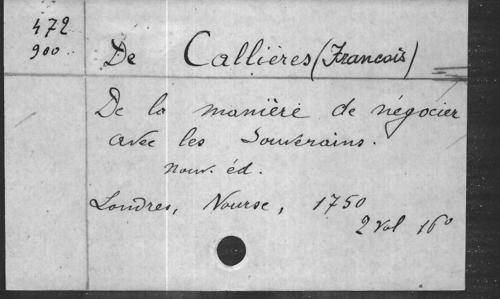 472
900
De Callières (Francois)
De la manière de négocier
avec les Souverains.
nouv. éd.
Londres, Nourse, 1750
2 vol 16°